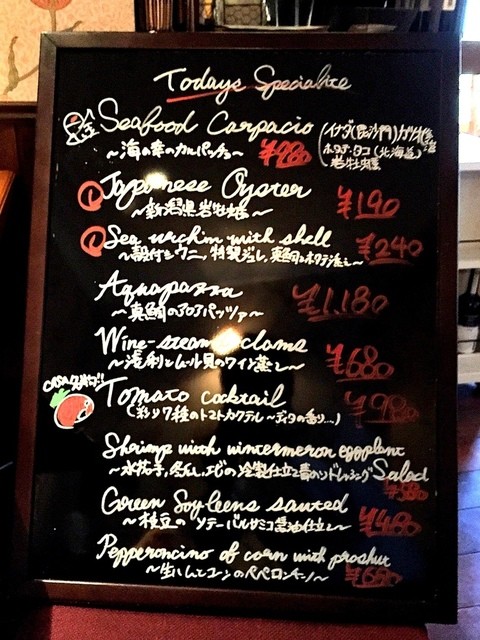 Todays Specialite
Seafood Carpacio
~海の幸のカルパッチョ~ ¥980
ホタテ・タコ(北海道)
岩牡蠣
Japanese Oyster
~新潟県岩牡蠣~ ¥190
Sea urchin with shell
~殻付きウニ、特製ジュレ、真鯛とホタテ添え~ ¥240
Aquapazza
~真鯛のアクアパッツァ~ ¥1,180
Wine-steamed clams
~浅利とムール貝のワイン蒸し~ ¥680
Tomato cocktail
(彩り7種のトマトカクテル~ディタの香り...)
Shrimp with wintermeron eggplant
~水茄子、冬瓜、エビの冷製仕立て 青のりドレッシング Salad
¥580
Green Soybeens sauted
~枝豆のソテーバルサミコ醤油仕立て~ ¥480
Pepperoncino of corn with proshut
~生ハムとコーンのペペロンチーノ~